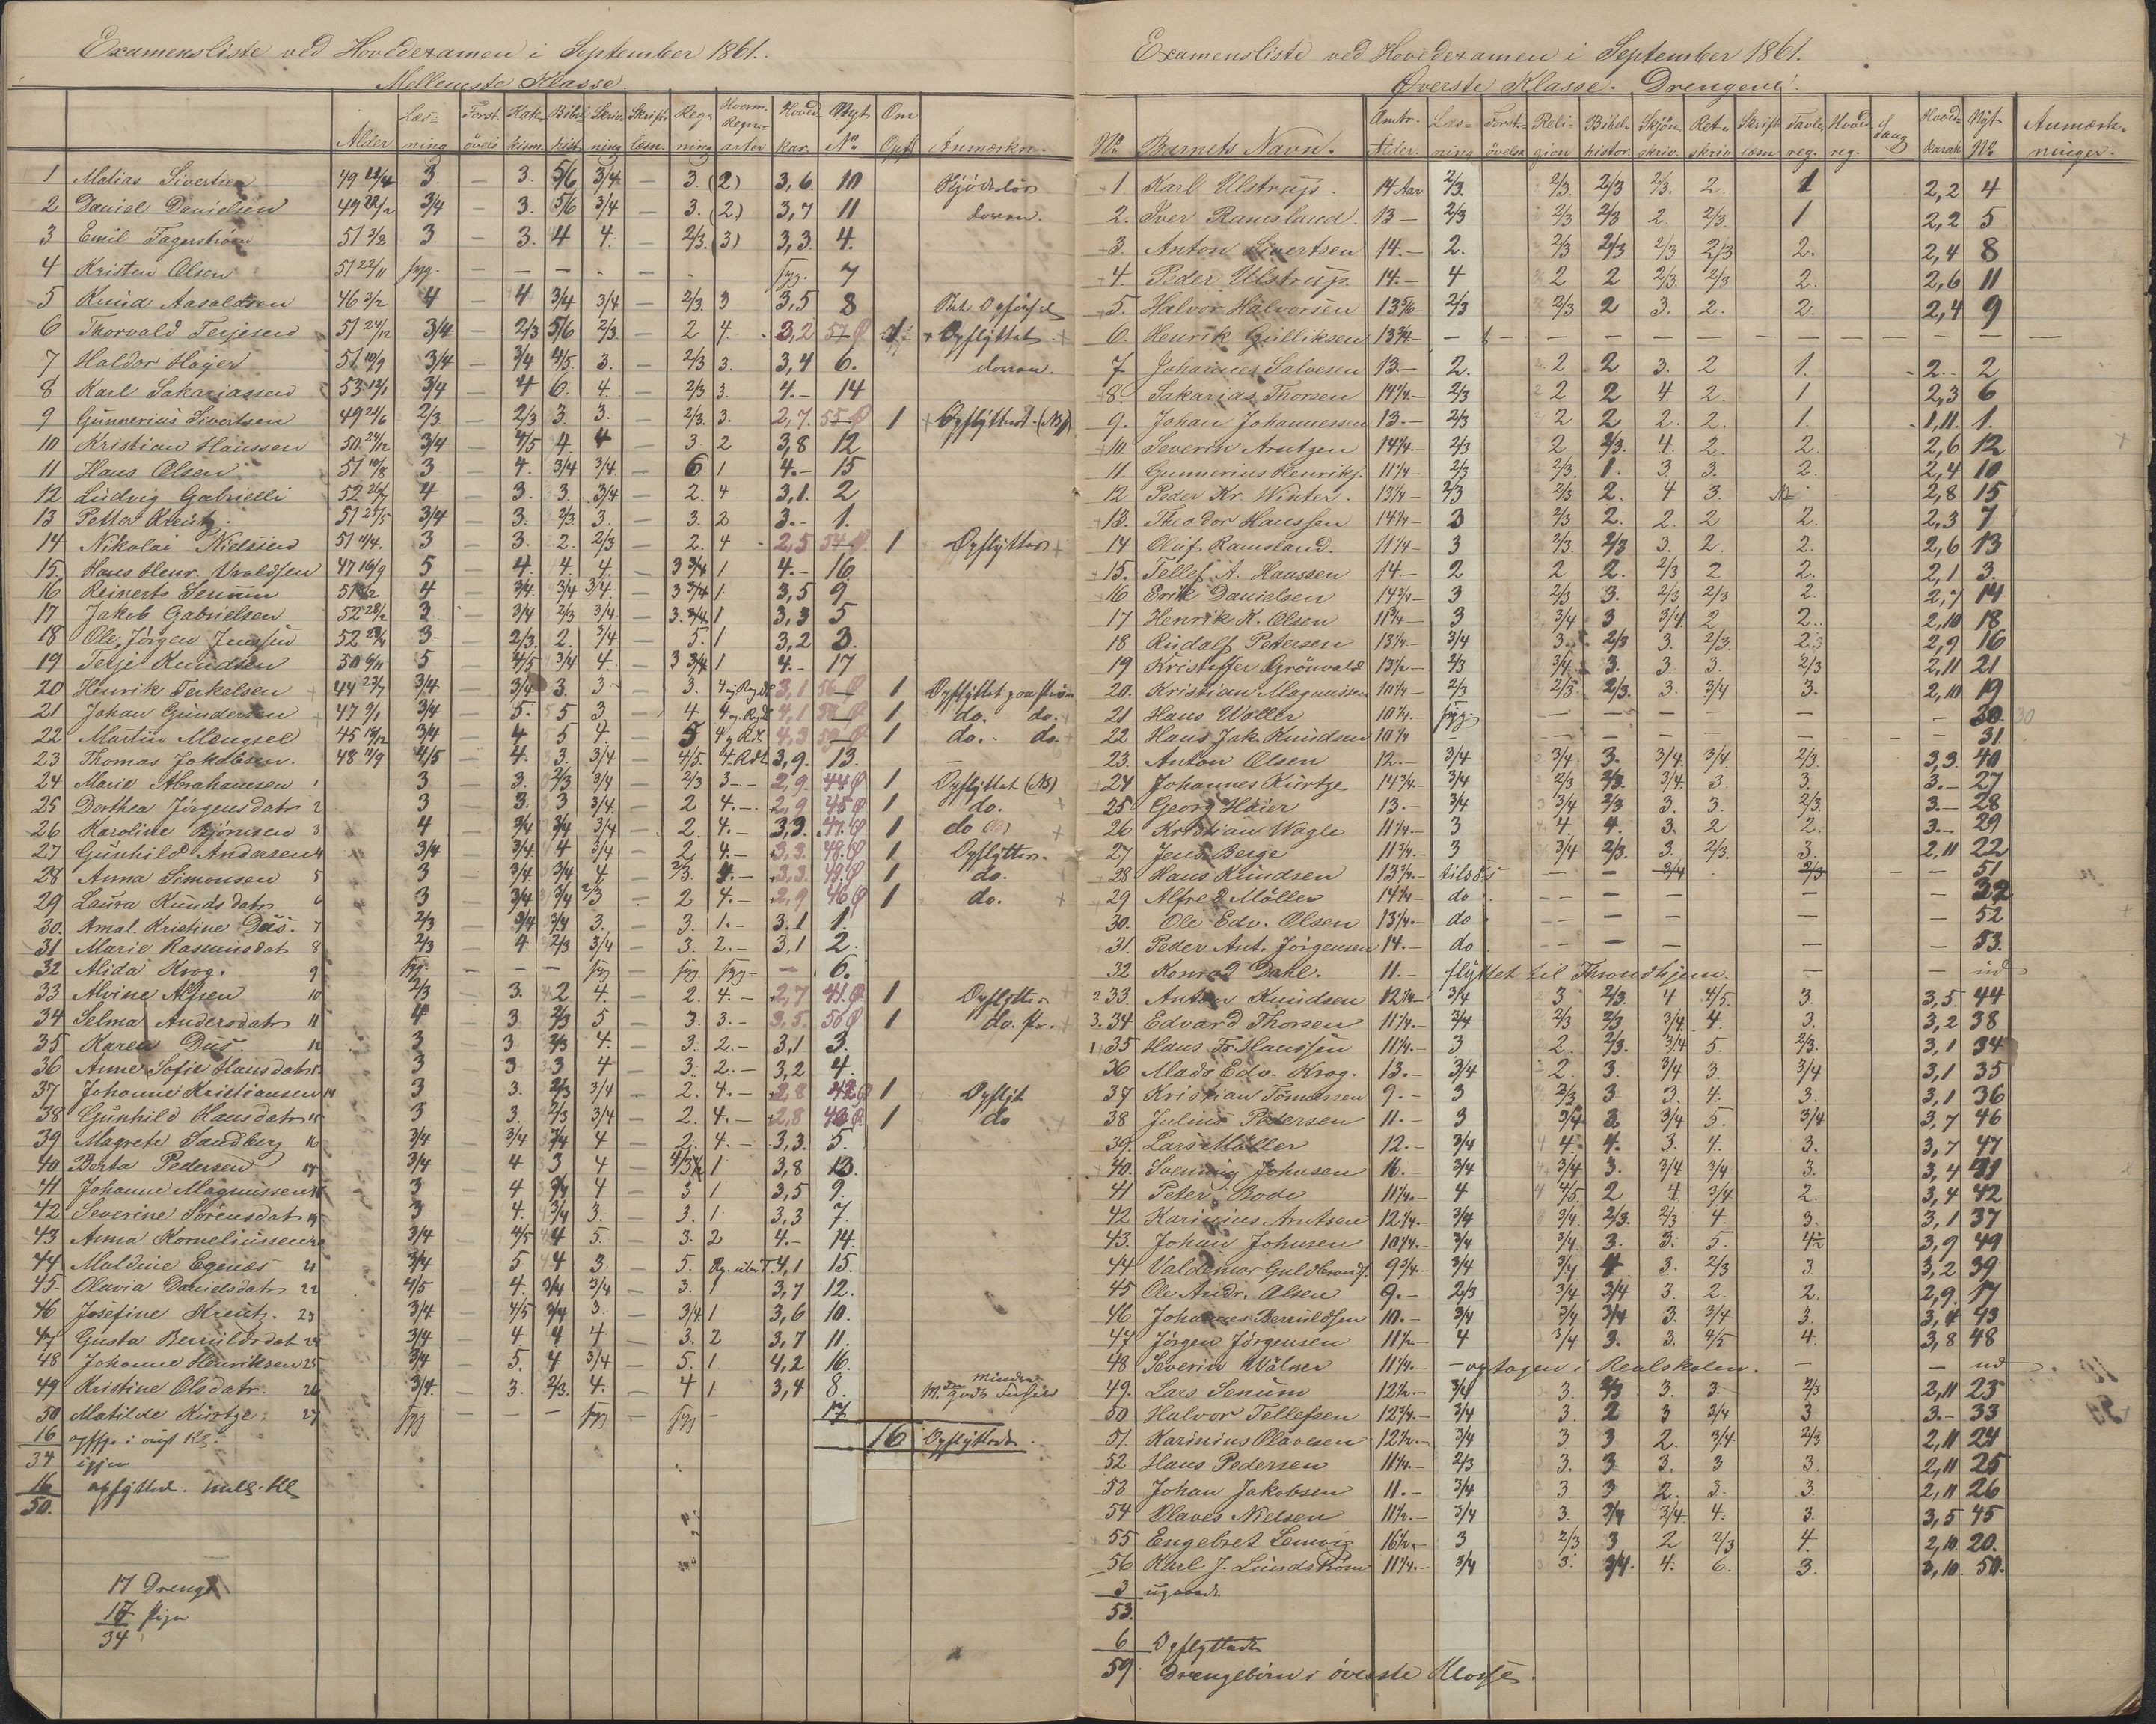 Examensliste ved Hovedexamen i September 1861.
Mellemste Klasse.
Alder Læsning Forst. öveis Katekism. Bibelhist. Skrivning Skrift. læsn. Regning Hvorm. Regnearter Hoved Kar. Nyt No. Om Opf. Anmærkn.
1 Matias Sivertsen 3 – 3. 5/6 3/4 – 3. (2) 3,6 10
2 Daniel Danielsen 49 3/4 – 3. 5/6 3/4 – 3. (2) 3,7 11
3 Emil Fagerström 51 3 – 3. 4 4. – 2/3. (3) 3,3. 4.
4 Kristen Olsen 51 syg. – – – – – syg. 7
5 Knud Aasoldsen 46 4 – 4 3/4 3/4 – 2/3. 3 3,5 8
6 Thorvald Terjesen 51 24/12 3/4 – 2/3 5/6 2/3. – 2 4. 3,2 Opflyttet
7 Haldor Høyer 51 10/9 3/4 – 3/4 4/5 3. – 2/3 3. 3,4 6.
8 Karl Sakariassen 53 3/4 – 4 6. 4. – 2/3 3. 4.– 14
9 Gunnerius Sivertsen 49 2/3. – 2/3 3. 3. – 2/3. 3. 2,7. 55 1 Opflyttet
10 Kristian Hanssen 50 3/4 – 4/5 4. 4 – 3. 2 3,8 12
11 Hans Olsen 51 10/8 3 – 4. 3/4 3/4 – 6 1 4.– 15
12 Ludvig Gabrielli 52 4 – 3. 3. 3/4 – 2. 4 3,1. 2
13 Petter Kreutz 51 3/4 – 3. 2/3. 3. – 3. 2 3.– 1.
14 Nikolai Nielsen 51 11/4. 3 – 3. 2. 2/3 – 2. 4 2,5 54 1 Opflyttes
15. Hans Henr. 47 16/9 5 – 4. 4. 4. – 3 3/4 1 4.– 16
16 Reinerts Senum 4 – 3/4. 3/4 3/4. – 3 3/4 1. 3,5 9.
17 Jakob Gabrielsen 52 28/2 3 – 3/4 2/3 3/4 – 3. 3/4 1 3,3 5
18 Ole Jörgen 52 3 – 2/3. 2. 3/4 – 5. 1 3,2 3.
19 Terje Knudsen 50 6/11 5 – 4/5 3/4 4. – 3 3/4 1 4.– 17
20 Henrik Terkelsen 44 23/7 3/4 – 3/4 3. 3 – 3. 3,1 56 1 Opflyttet
21 Johan Gundersen 47 9/1 3/4 – 5. 5 3 – 4 4,1 1 do. do.
22 Martin Mengsel 45 3/4 – 4 5 4 – 5 4,3 1 do. do.
23 Thomas Jakobsen. 48 11/9 4/5 – 4. 3. 3/4 – 4/5. 3,9. 13.
24 Marie Abrahamsen 1 3 3. 2/3 3/4 – 2/3 3– 2,9. 44 1 Opflyttet
25 Dorthea Jörgensdatr 2 3 3. 3 3/4 – 2 4.– 2,9. 45 1 do.
26 Karoline Bjørnsen 3 4 3/4 3/4 3/4 – 2. 4.– 3,3. 47. 1 do
27 Gunhild Andersen 4 3/4 3/4 4 3/4 – 2 4.– 3,3. 48. 1 Opflyttes.
28 Anna Simonsen 5 3 3/4 3/4 4 – 2/3. 4.– 3,3. 49. 1 do.
29 Laura Knudsdatr 6 3 3/4 3/4 2/3 – 2 4.– 2,9 46 1 do.
30. Amal. Kristine Dus. 7 2/3 3/4 3/4 3. – 3. 1.– 3.1 1.
31 Marie Rasmusdat 8 2/3 4 2/3 3/4 – 3. 2.– 3,1 2.
32 Alida Krog. 9 syg. – – – syg – syg syg – – 6.
33 Alvine Alsen 10 2/3 3. 2 4. – 2. 4.– 2,7 41. 1 Opflyttes
34 Selma Andersdatr 11 4 3 2/3 5 – 3. 3.– 3,5. 50 1 do.
35 Karen Dus 12 3 3 2/3 4. – 3. 2.– 3,1 3.
36 Anne Sofie Hansdatr 3 3 3 4 – 3. 2.– 3,2 4.
37 Johanne Kristiansen 14 3 3. 2/3 3/4 – 2. 4.– 2,8 42 1 Opflyt
38 Gunhild Hansdatr 15 3 3. 2/3 3/4 – 2. 4.– 2,8 43 1 do
39 Magrete Sandberg 16 3/4 3/4 3/4 4 – 2. 4.– 3,3. 5.
40 Berta Pedersen 17 3/4 4 3 4 – 1 3,8 13.
41 Johanne Magnussen 18 3 4 3/4 4 – 3 1 3,5 9.
42 Severine Sörensdatr 19 3 4. 3/4 3. – 3. 1 3,3 7.
43 Anna Korneliussen 20 3/4 4/5 4 5. – 3. 2 4.– 14.
44 Maldine Egenæs 21 3/4 5 4 3. – 5. 4,1 15.
45. Olavia Danielsdatr 22 4/5 4. 3/4 3/4 – 3. 1 3,7 12.
46 Josefine Kreutz. 23 3/4. 4/5 3/4 3. – 3/4 1 3,6 10.
47 Gusta Berruldsdat 24 3/4 – 4 4 4 – 3. 2 3,7 11.
48 Johanne Henriksen 25 3/4 – 5. 4 3/4 – 5. 1 4,2 16.
49 Kristine Olsdatr. 26 3/4. – 3. 2/3. 4. – 4 1 3,4 8.
50 Matilde Kürtze. 27 syg – – – syg – syg – 17
16 16 Opflyttede
34 igjen
16 opflytted. mell. Kl
50.
17 Drenge
17 Piger
34
Examensliste ved Hovedexamen i September 1861.
Øverste Klasse. Drengene.
No. Barnets Navn. Omtr. Alder. Læsning Forst. övelse Religion Bibelhistor. Skjönskriv. Retskriv Skrift læsn Tavlereg. Hovedreg. Sang Hovedkarak Nyt No. Anmærkninger.
1. Karl Ulstrup. 14 Aar 2/3. 2/3. 2/3 2/3. 2. 1 2,2 4
2. Iver Ramsland. 13– 2/3 2/3 2/3 2. 2/3. 1 2,2 5
3. Anton Sivertsen 14.– 2. 2/3. 2/3 2/3 2/3 2. 2,4 8
4. Peder Ulstrup. 14.– 4 2 2 2/3. 2/3 2. 2,6 11
5. Halvor Halvorsen 2/3 2/3 2 3. 2. 2. 2,4 9
6. Henrik Gulliksen 13 3/4– – – – – – – – –
7 Johannes Salvesen 13– 2. 2 2 3. 2 1. 2.– 2
8. Sakarias Thorsen 14 1/4.– 2/3 2 2 4. 2. 1 2,3 6
9. Johan Johannessen 13.– 2/3 2 2 2. 2. 1. 1,11. 1.
10. Severin Arntzen 14 1/4.– 2/3 2 2/3. 4. 2. 2. 2,6 12
11 Gunnerius Henriks. 11 1/4– 2/3 2/3. 1. 3 3. 2. 2,4 10
12 Peder Kr. Winter. 13 1/4– 2/3 2/3 2. 4 3. 2,8 15
13. Theodor Hanssen 14 1/4– 3 2/3 2. 2. 2 2. 2,3 7
14 Oluf Ramsland. 11 1/4– 3 2/3. 2/3 3. 2. 2. 2,6 13
15. Tellef A. Hanssen 14.– 2 2 2. 2/3 2 2. 2,1 3.
16 Erik Danielsen 14 3/4– 3 2/3 3. 2/3 2/3 2. 2,7 14
17 Henrik K. Olsen 11 3/4– 3 3/4 3 3/4. 2 2. 2,10 18
18 Rudolf Petersen 13 1/4– 3/4 3. 2/3 3. 2/3. 2,9 16
19 Kristoffer Grönvald 13 1/2– 2/3 3/4. 3. 3. 3. 2/3 2,11 21
20. Kristian Magnussen 10 1/4– 2/3 2/3. 2/3. 3. 3/4 3. 2,11 19
21 Hans Wöller 10 1/4.– syg. – – – – – – 30. 30
22 Hans Jak. Knudsen 10 1/4 – – – – – – – 31
23. Anton Olsen 12.– 3/4 3/4 3. 3/4. 3/4. 2/3. 3,3. 40
24 Johannes Kürtze 14 3/4.– 3/4 2/3 2/3. 3/4. 3 3. 3.– 27
25 Georg Häier 13.– 3/4 3/4 2/3 3. 3. 2/3. 3.– 28
26 Kristian Wagle 11 1/4.– 3 4. 4. 3. 2 2. 3.– 29
27 Jens Berge 11 3/4.– 3 3/4 2/3. 3. 2/3. 3 2,11 22
28 Hans Knudsen 13 1/4.– tilsøs – – 3/4 2/3 – – 51
29 Alfred Möller 14 1/4– do – – – – – – 32
30. Ole Edv. Olsen 13 1/4.– do – – – – – – 52
31. Peder Ant. Jörgensen 14.– do – – – – – – 53.
32 Konrad Dahl. 11.– flyttet til Throndhjem. – – ud
2 33. Anton Knudsen 12 1/4– 3/4 3 2/3. 4 4/5. 3. 3,5. 44
3. 34 Edvard Thorsen 11 1/4.– 3/4 2/3 2/3 3/4. 4. 3. 3,2 38
1 35 Hans Fr. Hanssen 11 1/4.– 3 2. 2/3. 3/4 5. 2/3. 3,1 34
36 Mads Edv. Krog. 13.– 3/4 2. 3. 3/4 3. 3/4 3,1 35
37 Kristian Tönnessen 9.– 3 2/3 3 3. 4. 3. 3,1 36
38 Julius Petersen 11.– 3 3/4 3 3/4 5. 3/4 3,7 46
39. Lars Möller 12.– 3/4 4 4. 3. 4. 3. 3,7 47
40. Svennig Johnsen 16.– 3/4 3/4 3. 3/4 3/4 3. 3,4 41
41 Peter Rode 11 1/4.– 4 4/5. 2 4. 3/4 2. 3,4 42
42 Karinius Arntsen 12 1/4.– 3/4 3/4. 2/3. 2/3 4. 3. 3,1 37
43. Johan Johnsen 10 1/4.– 3/4 3/4. 3. 3. 5. 4 1/2 3,9 49
44 Valdemar Guldbrands. 9 3/4.– 3/4 3/4 4 3. 2/3 3. 3,2 39
45 Ole Andr. Olsen 9.– 2/3 3/4 3/4 3. 2. 2. 2,9. 17
46 Johannes Berruldsen 10.– 3/4 3/4 3/4 3. 3/4 3. 3,4 43
47 Jörgen Jörgensen 11 1/2– 4 3/4 3. 3. 4/5 4. 3,8 48
48 Severin Wölner 11 1/4.– – optagen i Realskolen. – – ud
49. Lars Senum 12 1/2.– 3/4 3. 2/3 3. 3. 2/3 2,11 23
50 Halvor Tellefsen 12 3/4.– 3/4 3. 2 3 3/4 3 3.– 33
51. Karinius Olavesen 12 1/2.– 3/4 3 3 2. 3/4 2/3 2,11 24
52 Hans Pedersen 11 1/4.– 2/3 3. 3 3. 3 3. 2,11 25
53 Johan Jakobsen 11.– 3/4 3 3 2. 3. 3 2,11 26
54 Olaves Nielsen 11 1/2.– 3/4 3. 3/4 3/4. 4. 3. 3,5 45
55 Engebret Lemvig 16 1/2.– 3 2/3 3 2 2/3 4. 2,10. 20.
56 Karl J. Lundström 11 1/4.– 3/4 3. 3/4. 4. 6. 3. 3,10. 50.
3 udgaaede
53.
6 Opflyttede
59. Drengebörn i överste Klasse.